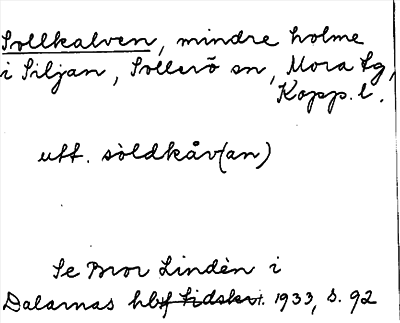 Sollkalven, mindre holme
i Siljan, Sollerö sn, Mora tg,
Kopp. l.
utt. sòldkåv(an)
Se Bror Lindén i
Dalarnas hbf tidskr. 1933, s. 92